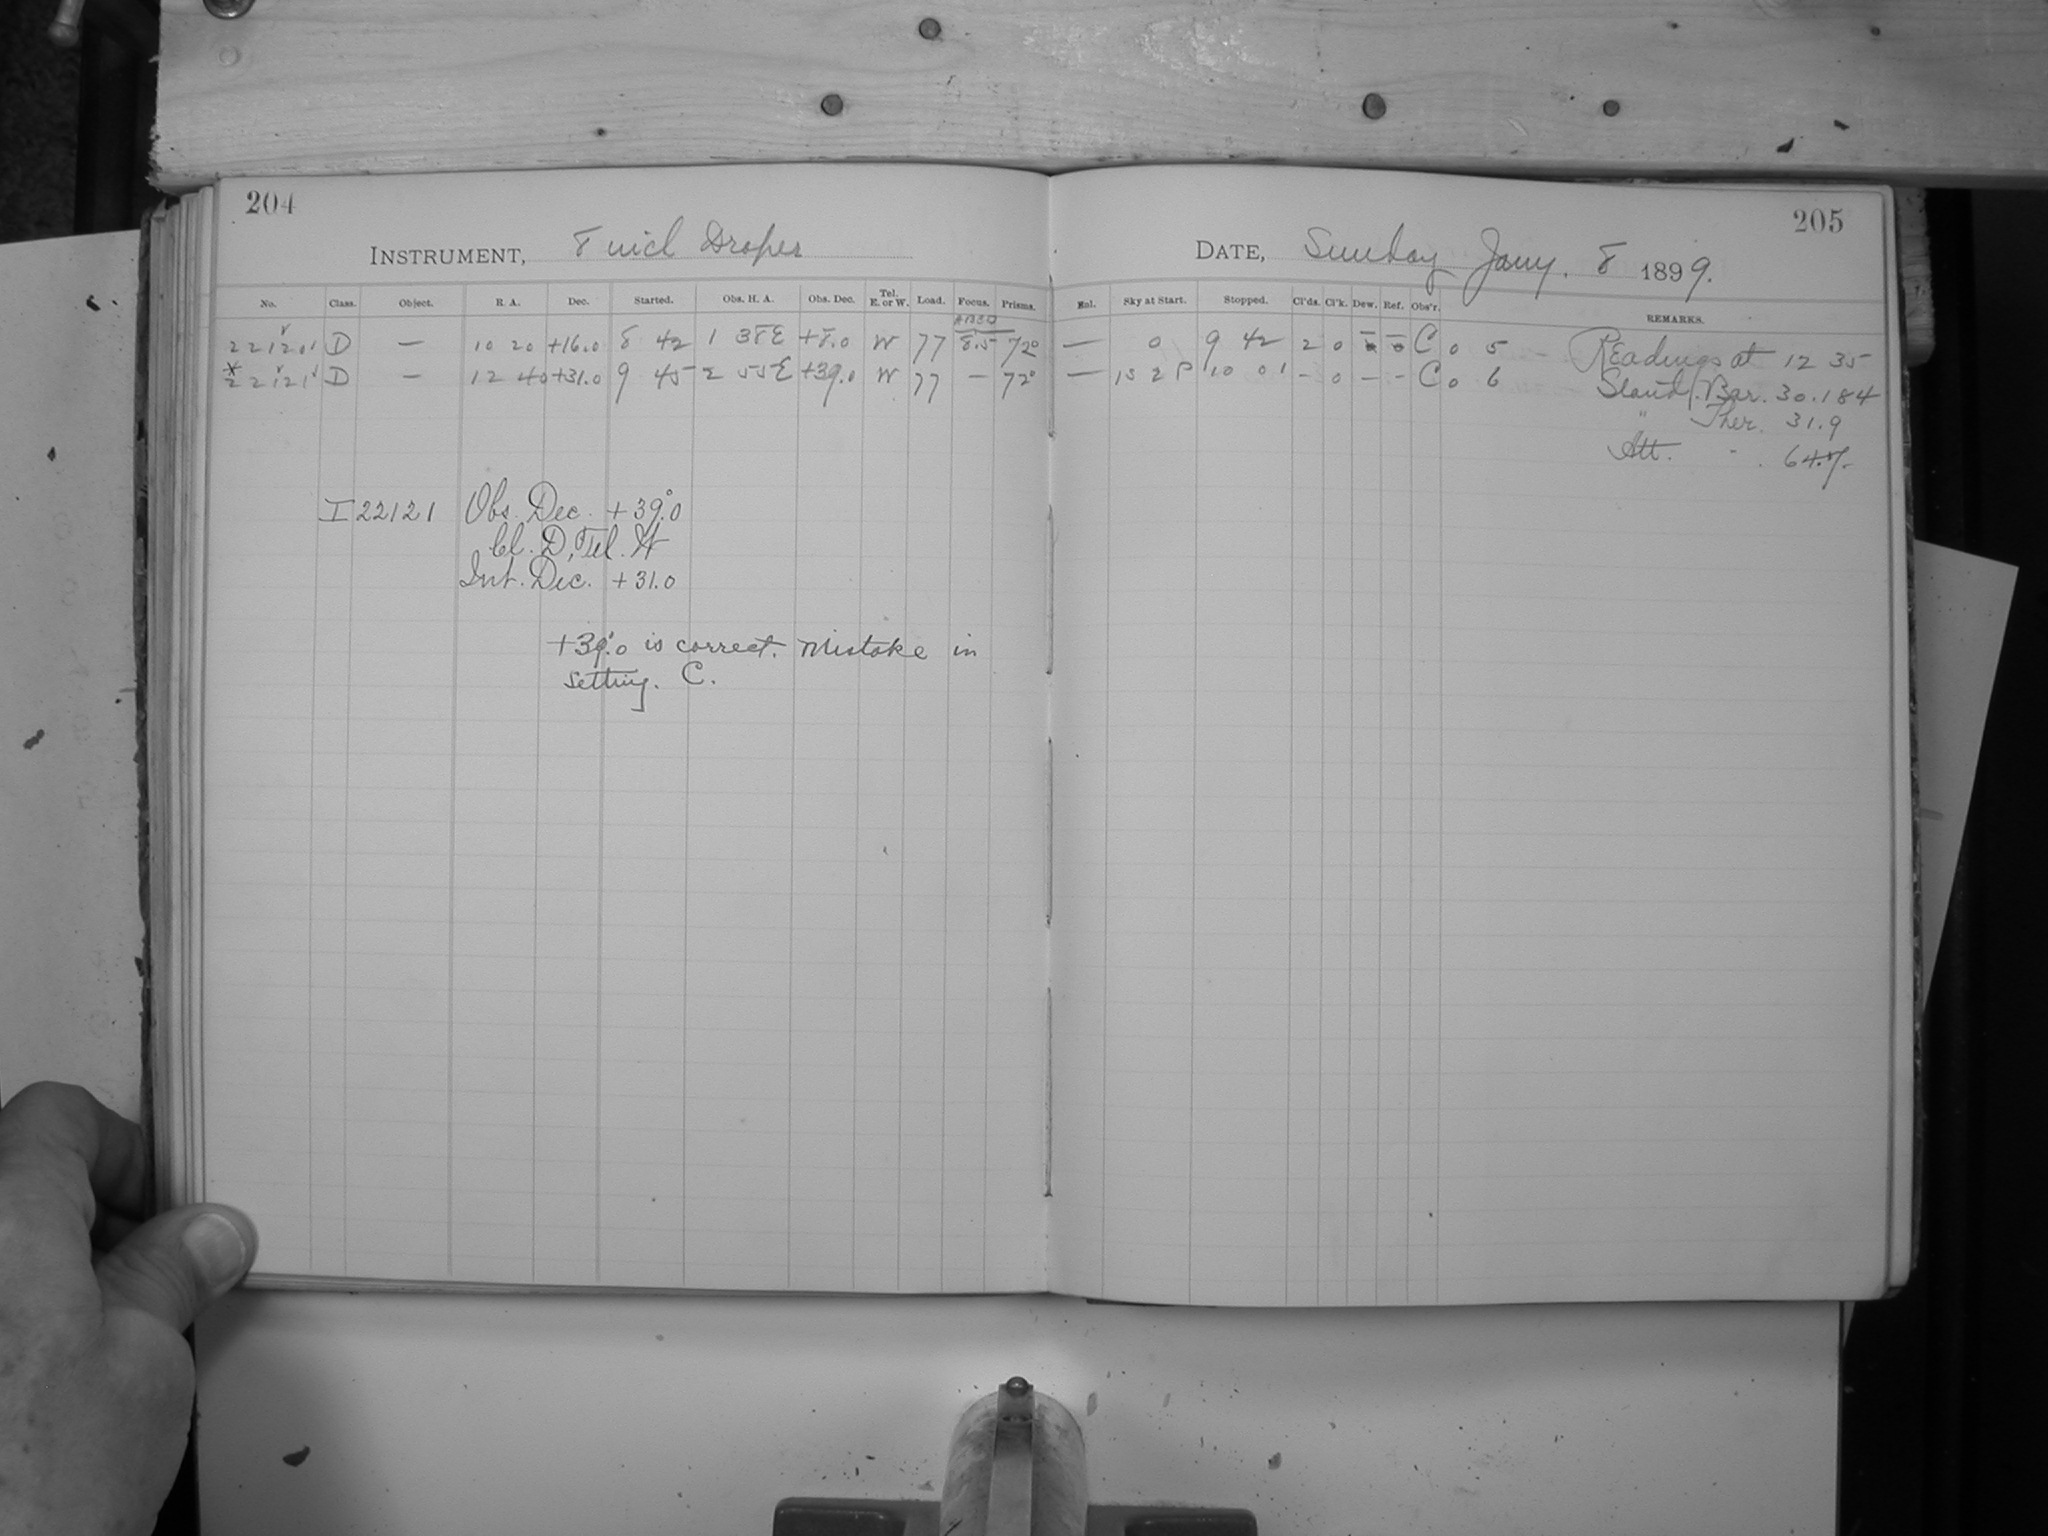 204
INSTRUMENT, 8 inch Draper
No. Class. Object. R. A. Dec. Started. Obs. H. A. Obs. Dec. Tel. E. or W. Load. Focus. Prisms.
22120 D — 10 20 +16.0 8 42 1 38 E +8.0 W 77 8.5 72°
* 22121 D — 12 40 +31.0 9 45 2 55 E +39.0 W 77 — 72°
I 22121 Obs. Dec. +39.0
Cl. D, Tel. W
Int. Dec. +31.0
+39.0 is correct. Mistake in
setting. C.
205
DATE, Sunday Jany. 8 1899.
Enl. Sky at Start. Stopped. Cl'ds. Cl'k. Dew. Ref. Obs'r. REMARKS.
— 0 9 42 2 0 C 0 5 — Readings at 12 35
— 15 2 P 10 01 - 0 - - C 0 6 Stand. Bar. 30.184
" Ther. 31.9
Att. " 64.5